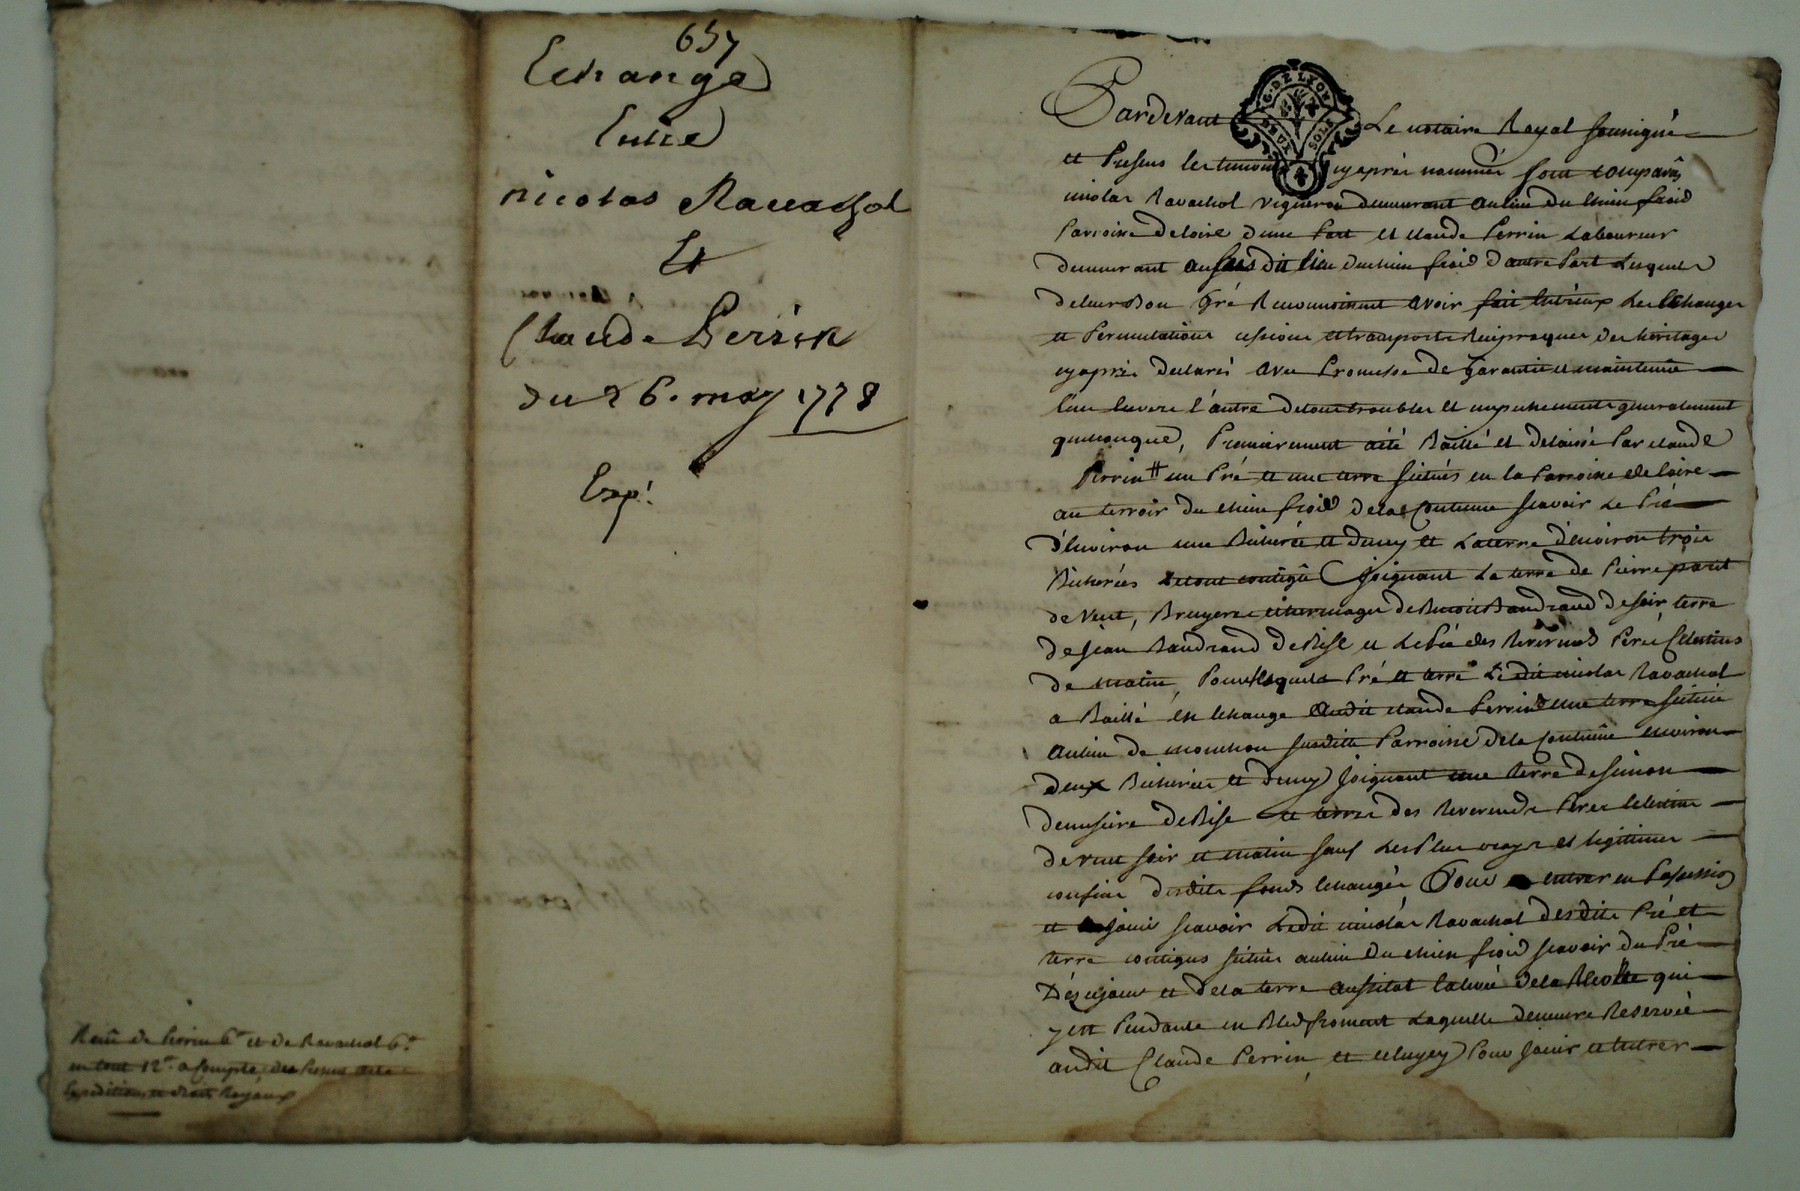 657
Echange
Entre
nicolas Ravachol
Et
Claude Perrin
du 26. may 1778
Exp.
Pardevant Le notaire Royal soussigné
et Presens les temoins cyaprès nommés sont comparus
nicolas Ravachol vigneron demeurant au lieu du chien froid
Parroisse de loire d'une Part et claude Perrin Laboureur
demeurant au susdit lieu du chien froid d'autre Part Lesquels
de leur Bon Gré Reconnoissent avoir fait entreux Les Echanges
et Permutations cessions et transports Reciproques des heritages
cyaprès declarés avec Promesse de garantie et maintenue
l'un Envers l'autre de tous troubles et empechements generalement
quelconque, Premierement a été Baillé et delaissé Par claude
Perrin # un Pré et une terre scitués en la Parroisse de loire
au terroir du chien froid de la Contenue scavoir Le Pré
d'Environ une Bicherée et demy et La terre d'environ trois
Bicherées Le tout contigû Joignant La terre de Pierre
de vent, Bruyere et hermages de Benoit Bandrand de soir terre
de Jean Bandrand de Bise et Le Pré des Reverends Peres Celestins
de matin, Pour lesquels Pré et terre Ledit nicolas Ravachol
a Baillé en Echange audit claude Perrin une terre scituée
au lieu de monchon susditte Parroisse de la Contenue environ
deux Bicherées et demy Joignant une terre de simon
de Bise et terres des Reverends Peres Celestins
de vent soir et matin sauf Les Plus vrays et legitimes
confins desdits fonds Echangés Pour entrer en Possession
et jouir scavoir Ledit nicolas Ravachol desdits Pré et
terre contigus scitués au lieu du chien froid scavoir du Pré
Dèscejour et de la terre aussitot la levée de la Recolte qui
y est Pendante en Bled froment Laquelle demeure Reservée
audit Claude Perrin et celuycy Pour Jouir et Entrer
Reçu de Perrin 6# et de Ravachol 6#
en tout 12# a Compte des
Expedition et droits Royaux